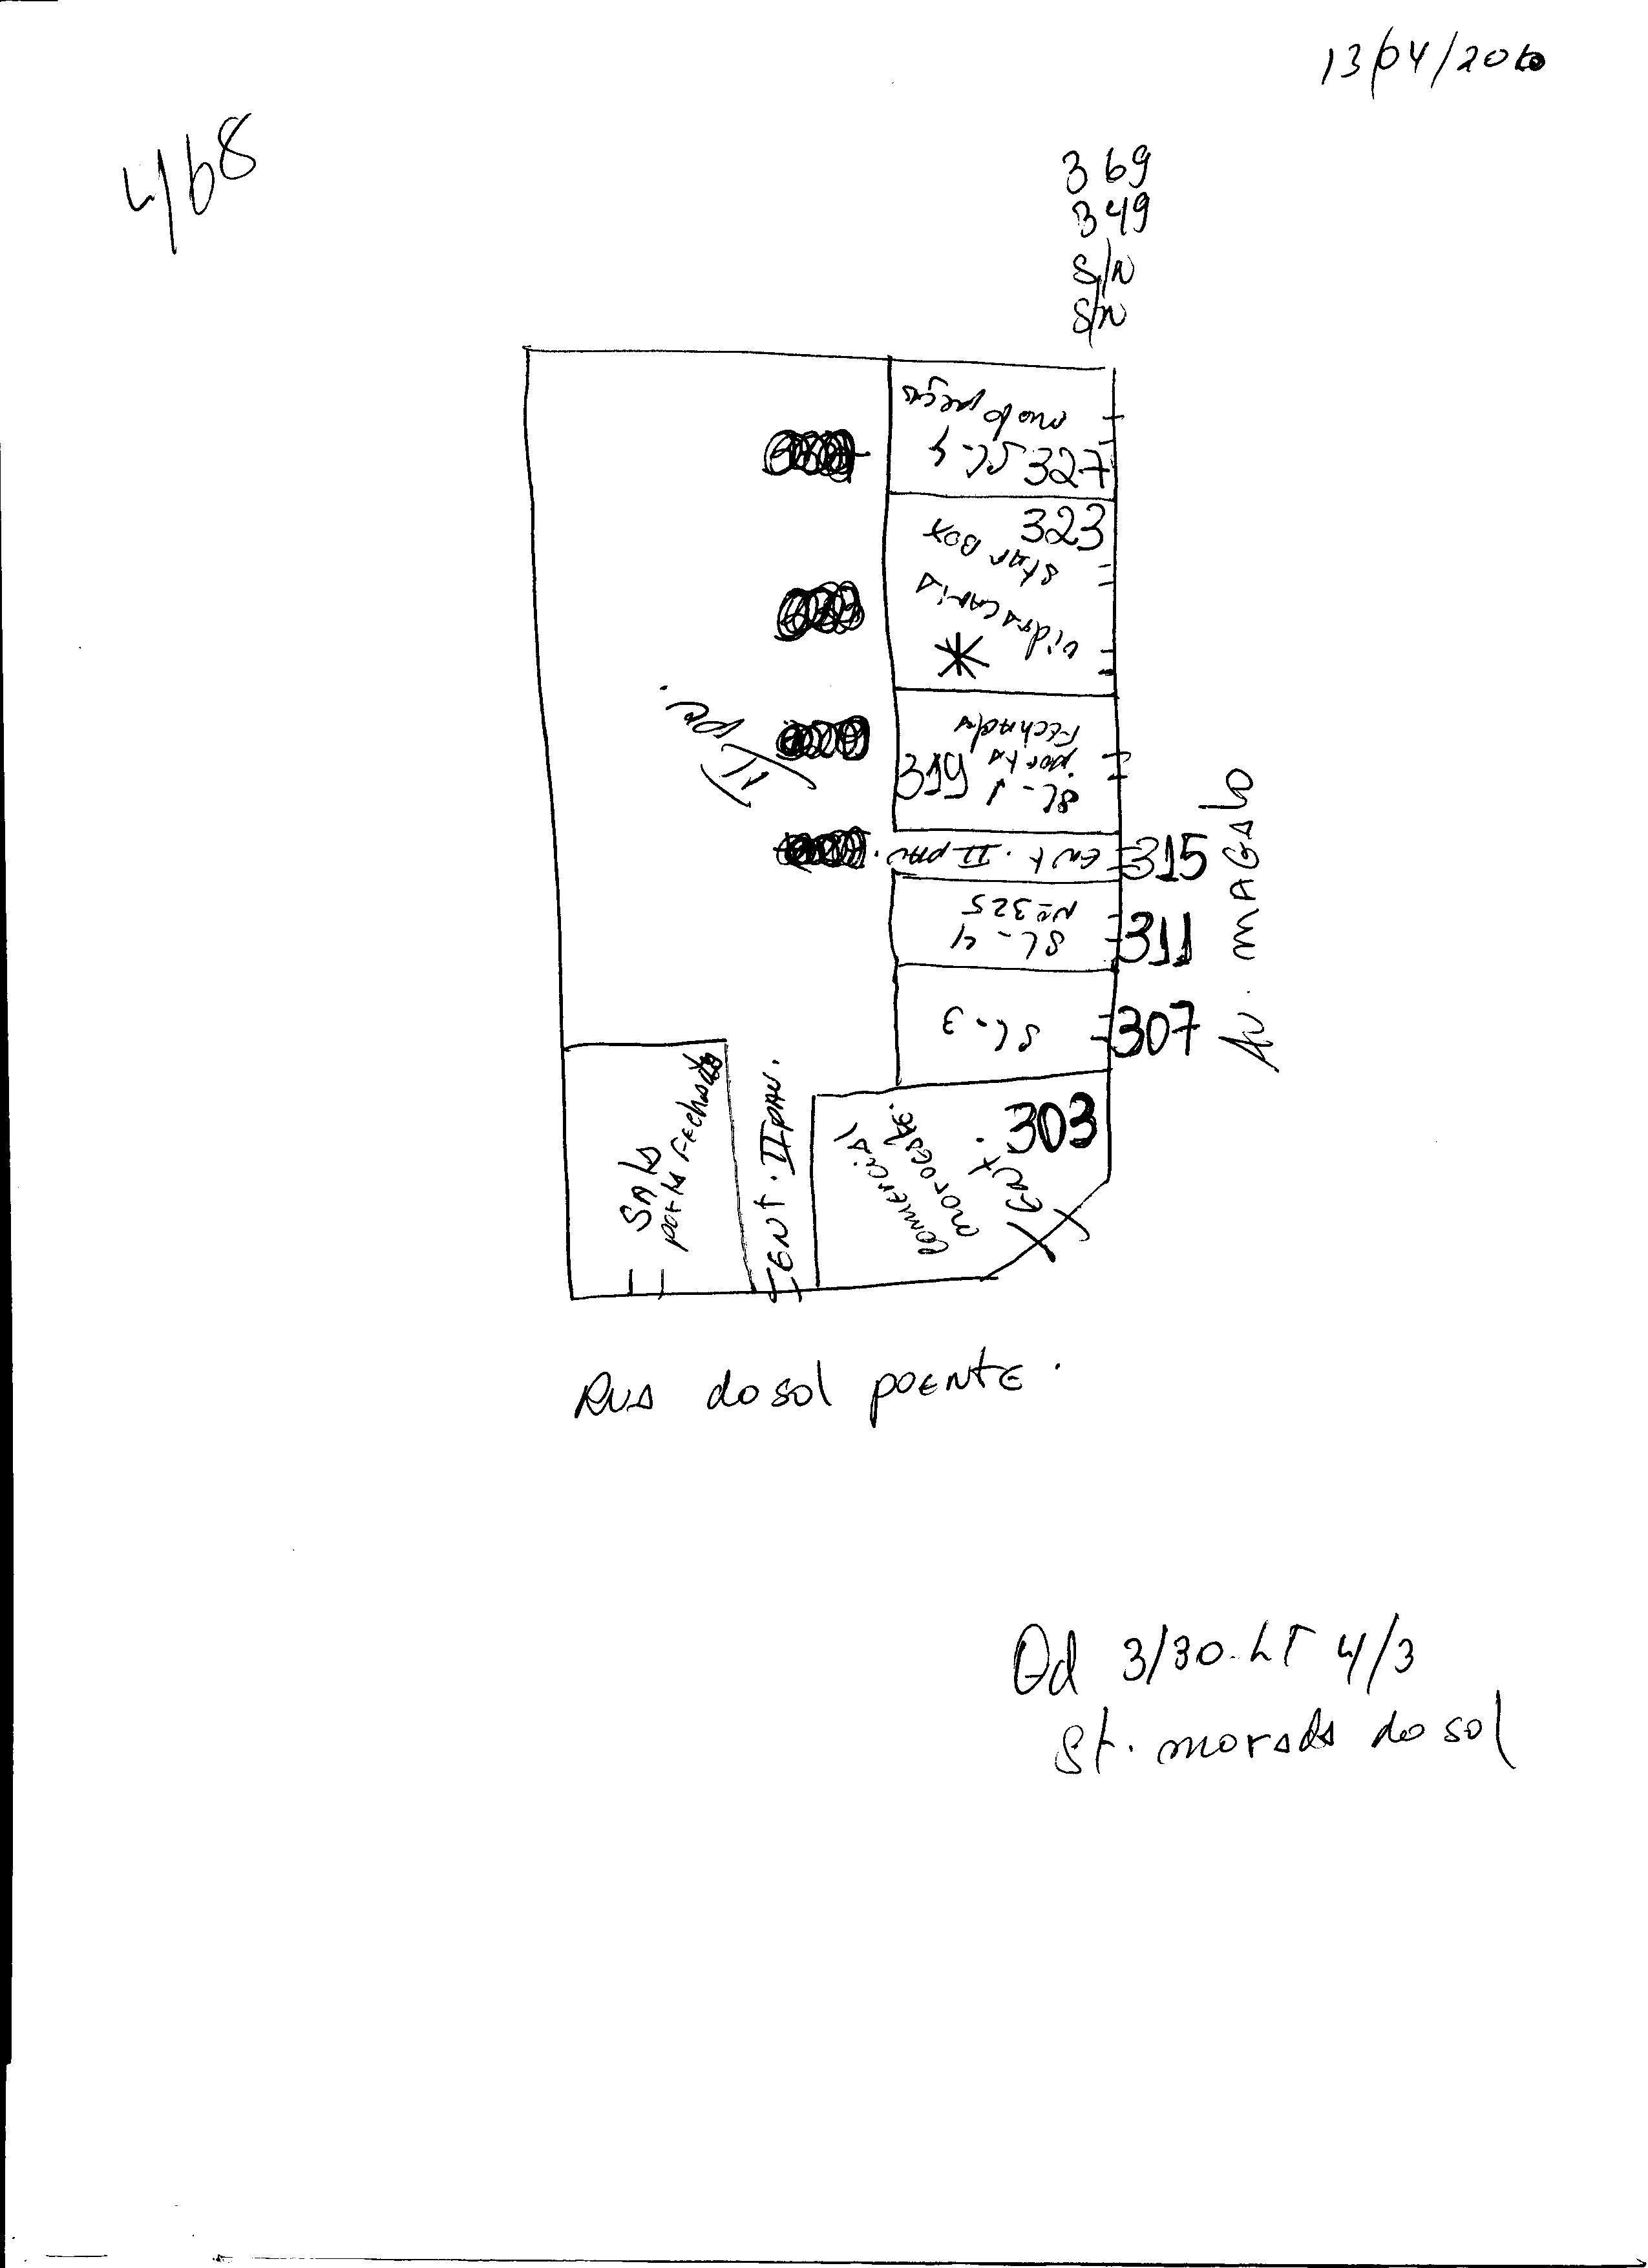 13/04/2010
4168
369
349
S/N
S/N
moto peças
327
323
Star Box
vidraçaria
SL-1
porta
Fechada
319
II pc.
Ent. II pav.
315
SL-4
Nº 325
311
SL-3
307
Av. Magalo
303
Ent.
Comercial
Noroeste.
Ent. II pav.
Sala
porta Fechada
Rua do sol poente.
Qd 3/30. LT 4/3
St. morada do sol